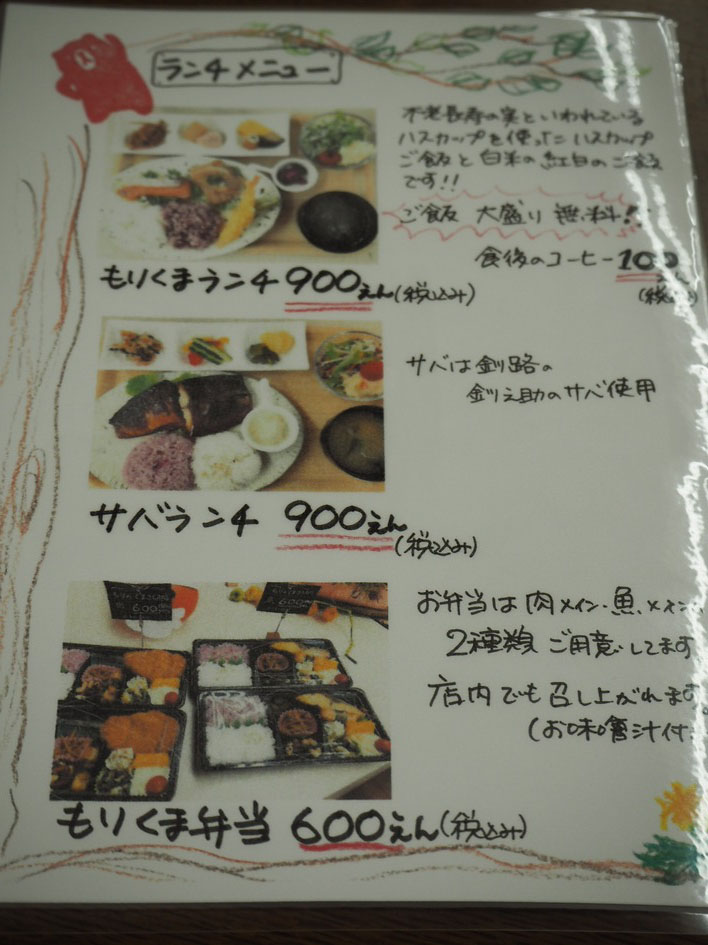 ランチメニュー
不老長寿の実といわれている
ハスカップを使ったハスカップ
ご飯と白米の紅白のご飯
です!!
ご飯 大盛り 無料!!
食後のコーヒー100えん
(税込)
もりくまランチ 900えん(税込み)
サバは釧路の
釧之助のサバ使用
サバランチ 900えん
(税込み)
600
600
お弁当は肉メイン・魚メイン、
2種類 ご用意してます
店内でも召し上がれます。
(お味噌汁付
もりくま弁当 600えん(税込み)